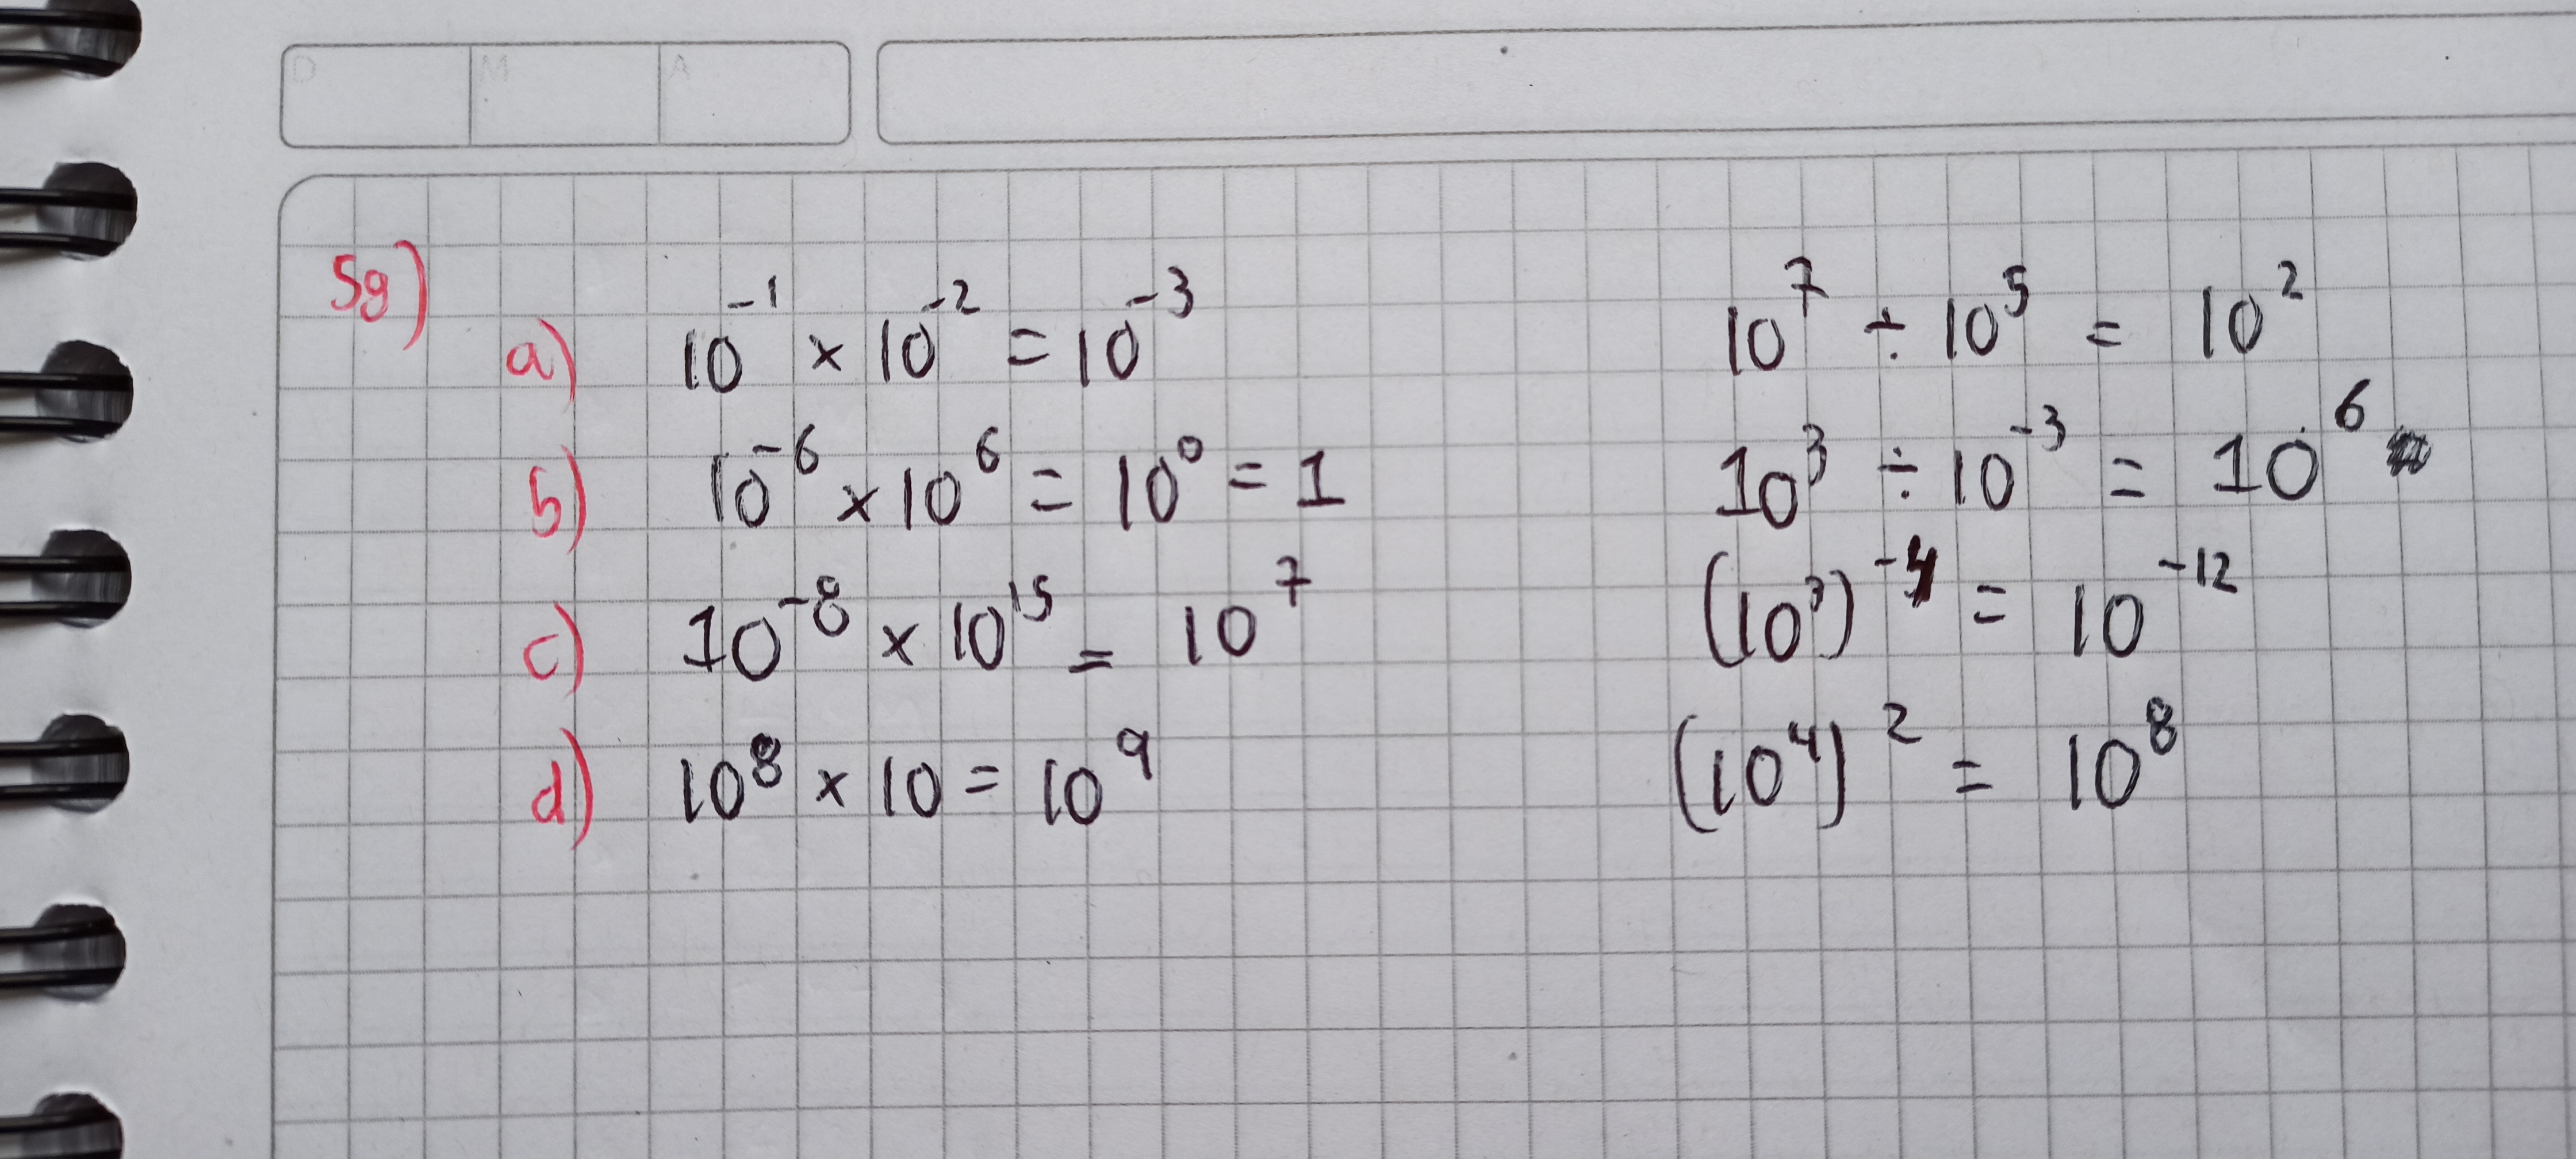 D M A
5g)
a) 10⁻¹ × 10⁻² = 10⁻³
b) 10⁻⁶ × 10⁶ = 10⁰ = 1
c) 10⁻⁸ × 10¹⁵ = 10⁷
d) 10⁸ × 10 = 10⁹
10⁷ ÷ 10⁵ = 10²
10³ ÷ 10⁻³ = 10⁶
(10³)⁻⁴ = 10⁻¹²
(10⁴)² = 10⁸